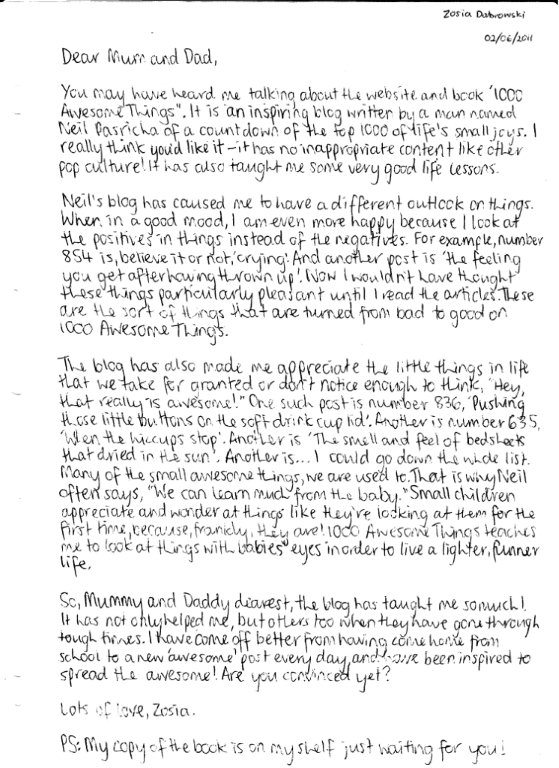 Zosia Dabrowski
02/06/2011
Dear Mum and Dad,
You may have heard me talking about the website and book '1000
Awesome Things". It is an inspiring blog written by a man named
Neil Pasricha of a countdown of the top 1000 of life's small joys. I
really think you'd like it - it has no inappropriate content like other
pop culture! It has also taught me some very good life lessons.
Neil's blog has caused me to have a different outlook on things.
When in a good mood, I am even more happy because I look at
the positives in things instead of the negatives. For example, number
854 is, believe it or not, 'crying'. And another post is 'the feeling
you get after having thrown up'. Now I wouldn't have thought
these things particularly pleasant until I read the articles. These
are the sort of things that are turned from bad to good on
1000 Awesome Things.
The blog has also made me appreciate the little things in life
that we take for granted or don't notice enough to think, 'Hey,
that really is awesome!" One such post is number 836, 'Pushing
those little buttons on the soft drink cup lid'. Another is number 635,
'When the hiccups stop'. Another is 'The smell and feel of bedsheets
that dried in the sun'. Another is... I could go down the whole list.
Many of the small awesome things, we are used to. That is why Neil
often says, "We can learn much from the baby." Small children
appreciate and wonder at things like they're looking at them for the
first time, because, frankly, they are! 1000 Awesome Things teaches
me to look at things with babies' eyes in order to live a lighter, funner
life.
So, Mummy and Daddy dearest, the blog has taught me so much!
It has not only helped me, but others too when they have gone through
tough times. I have come off better from having come home from
school to a new 'awesome' post every day, and have been inspired to
spread the awesome! Are you convinced yet?
Lots of love, Zosia.
PS: My copy of the book is on my shelf just waiting for you!